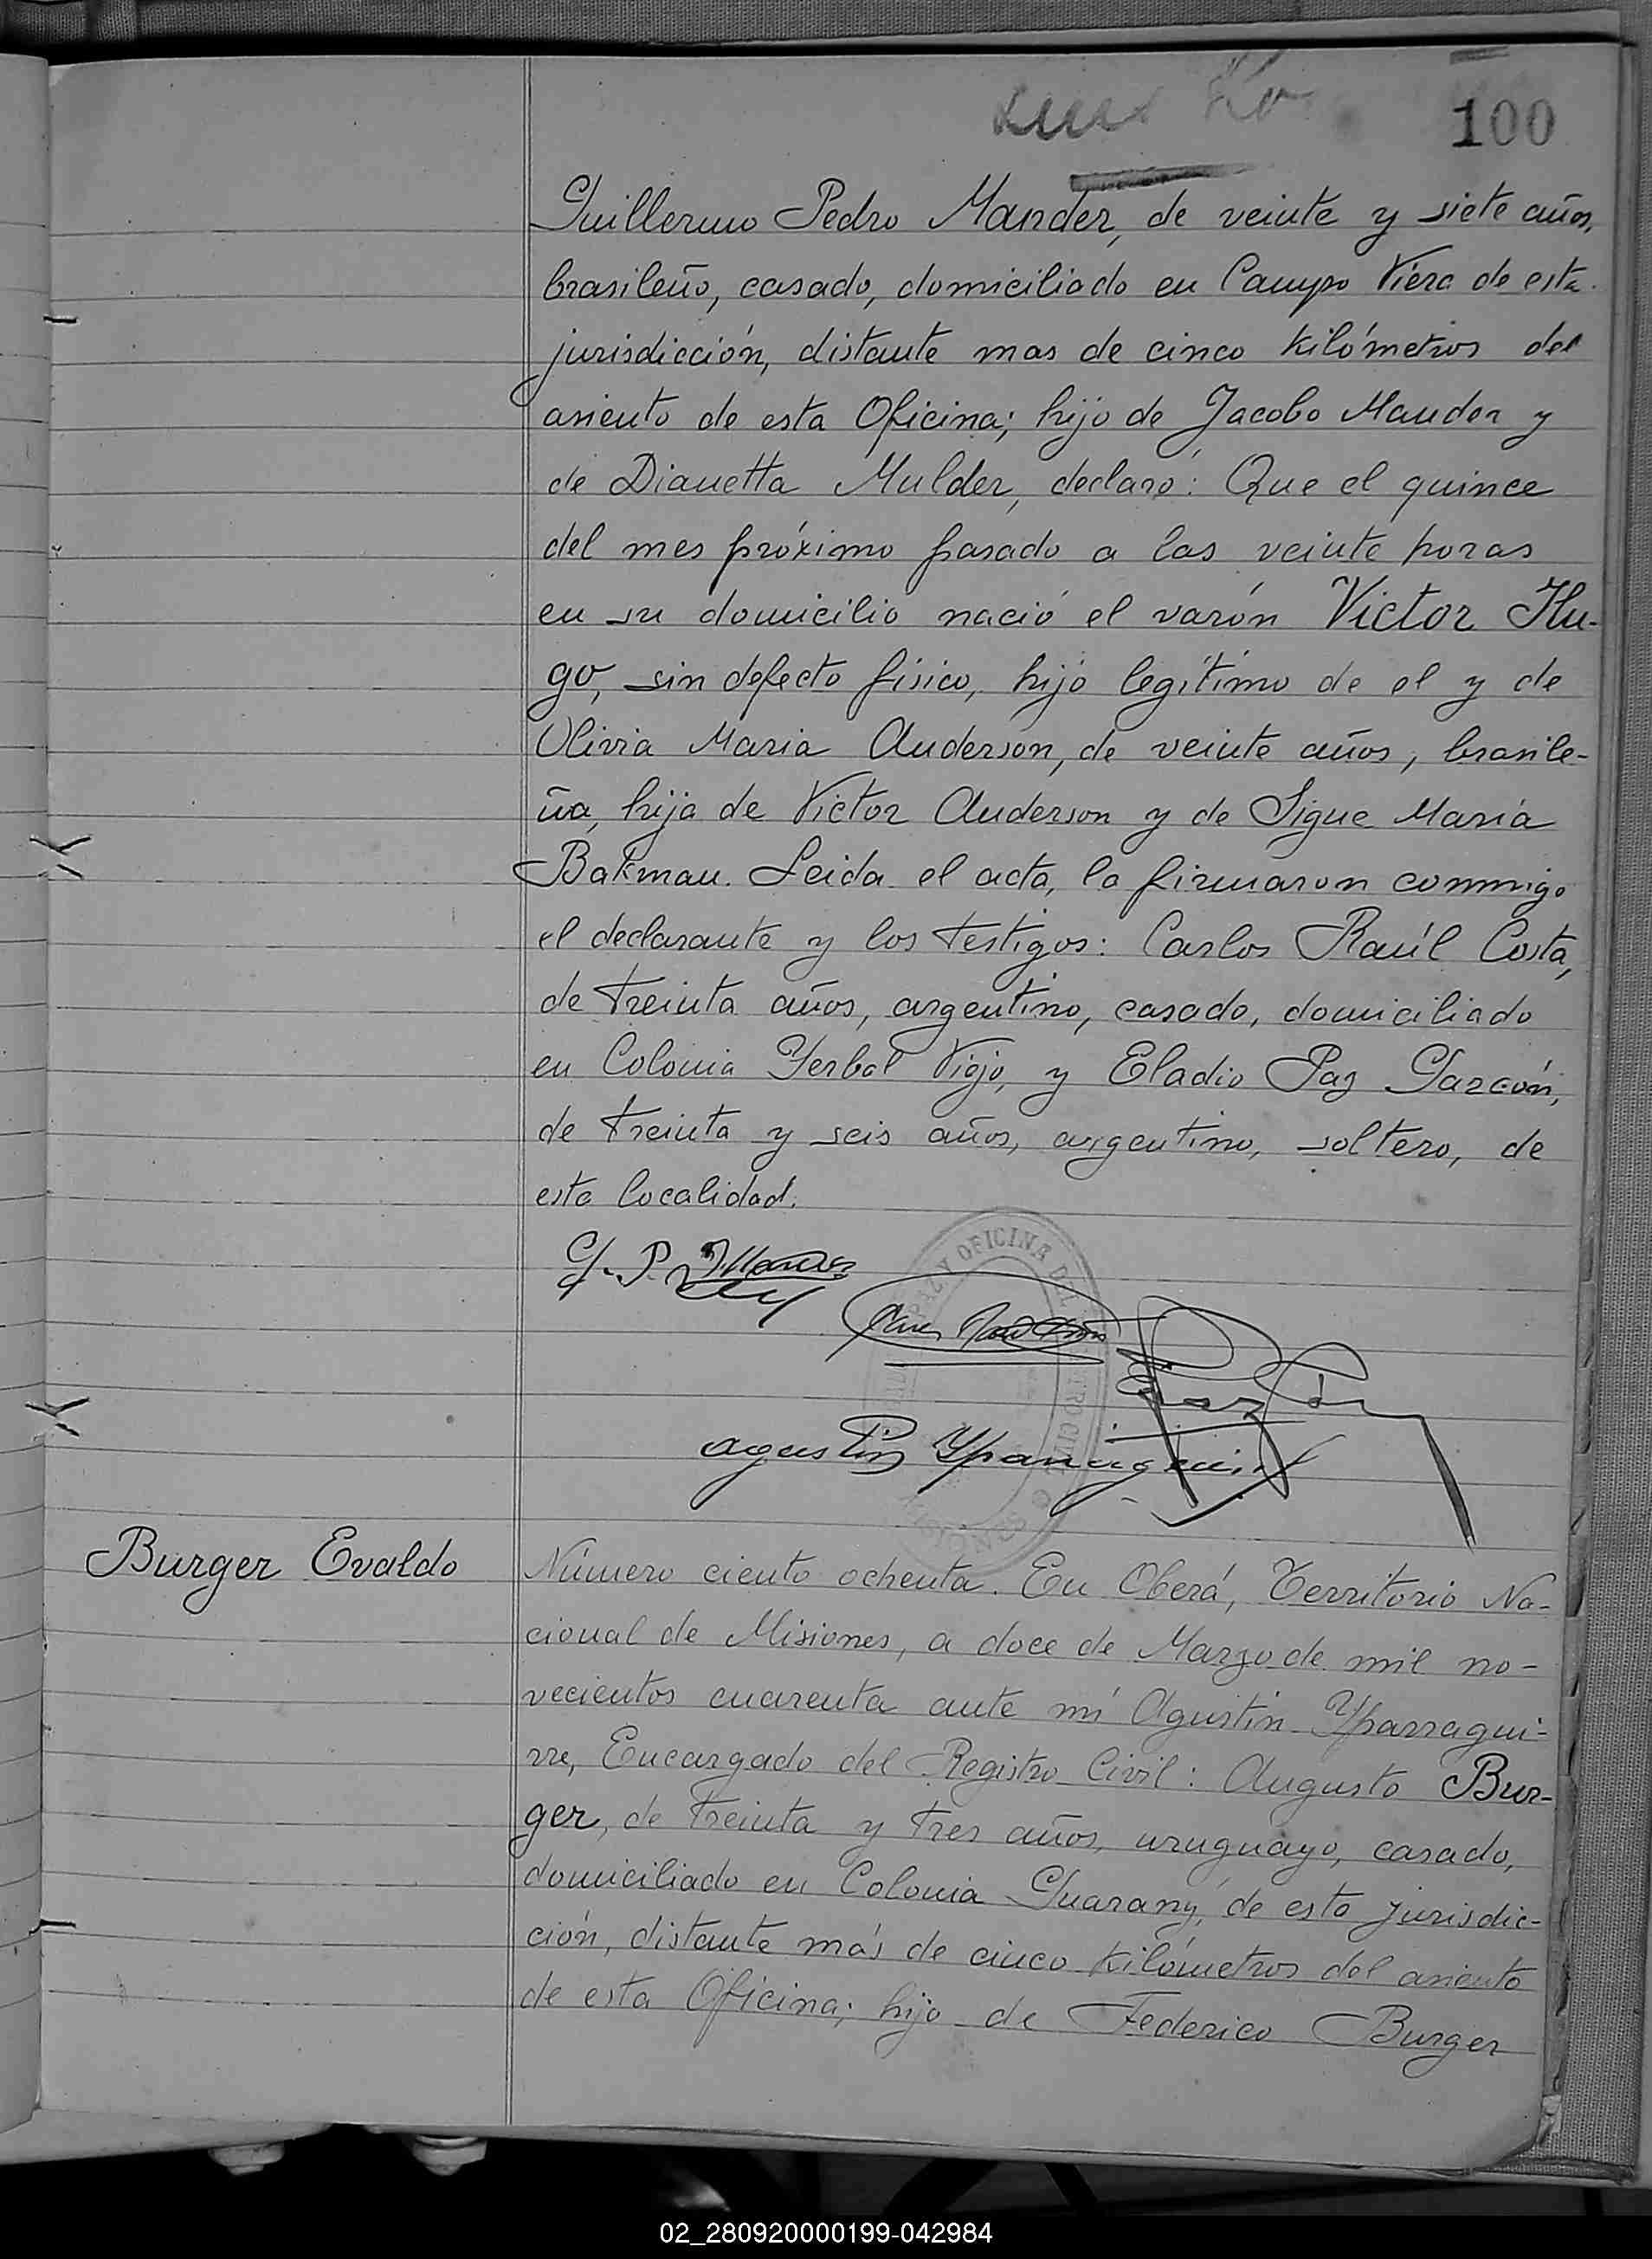 100
Guillermo Pedro Mander, de veinte y siete años,
brasileño, casado, domiciliado en Campo Viera de esta
jurisdicción, distante mas de cinco kilómetros del
asiento de esta Oficina; hijo de Jacobo Mander y
de Dianetta Mulder, declaró: Que el quince
del mes próximo pasado a las veinte horas
en su domicilio nació el varón Victor Hu-
go, sin defecto físico, hijo legítimo de el y de
Olivia Maria Anderson, de veinte años, brasile-
ña, hija de Victor Anderson y de Signe María
Bakman. Leida el acta, la firmaron conmigo
el declarante y los testigos: Carlos Raúl Costa,
de treinta años, argentino, casado, domiciliado
en Colonia Yerbal Viejo, y Eladio Paz Garzón,
de treinta y seis años, argentino, soltero, de
esta localidad.
G. P. Mander
OFICINA DEL
Agustin Yparraguirre
Burger Evaldo
Número ciento ochenta. En Oberá, Territorio Na-
cional de Misiones, a doce de Marzo de mil no-
vecientos cuarenta ante mí Agustín Yparragui-
rre, Encargado del Registro Civil: Augusto Bur-
ger, de treinta y tres años, uruguayo, casado,
domiciliado en Colonia Guarany, de esta jurisdic-
ción, distante más de cinco kilómetros del asiento
de esta Oficina; hijo de Federico Burger
02_280920000199-042984